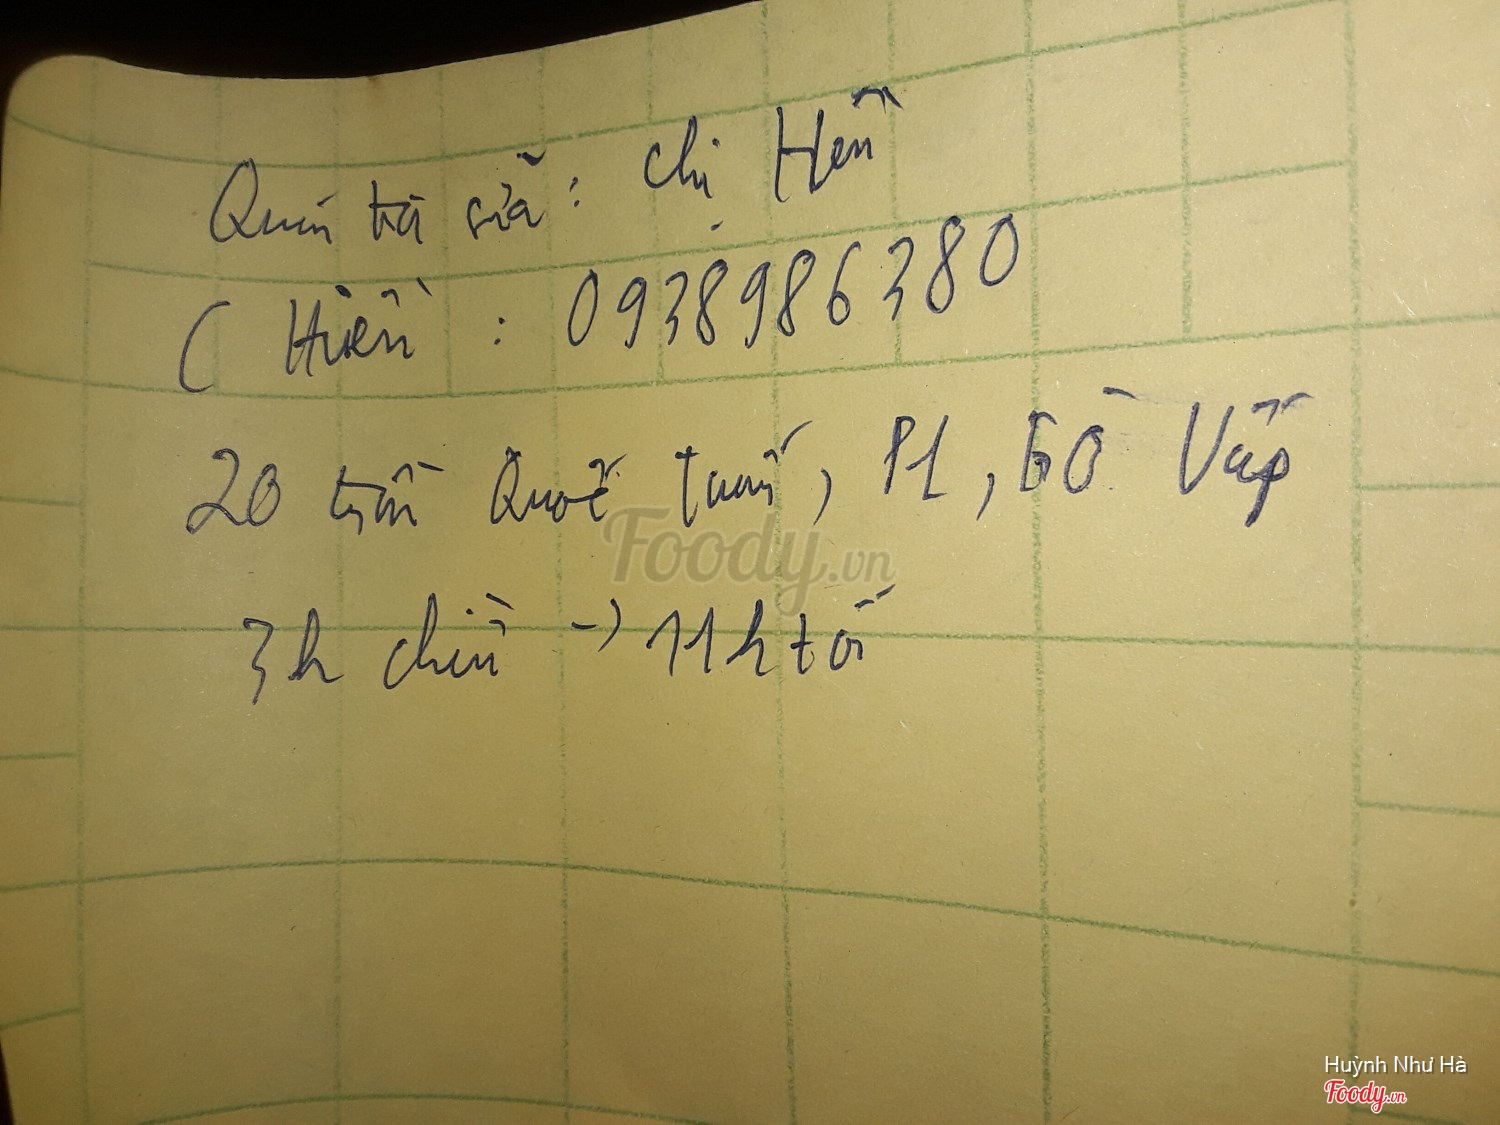 Quán trà sữa: chị Hền
( Hiền : 0938986380
20 trần Quốc tuấn, P1, Gò Vấp
3h chiều -> 11h tối
Foody.vn
Huỳnh Như Hà
Foody.vn